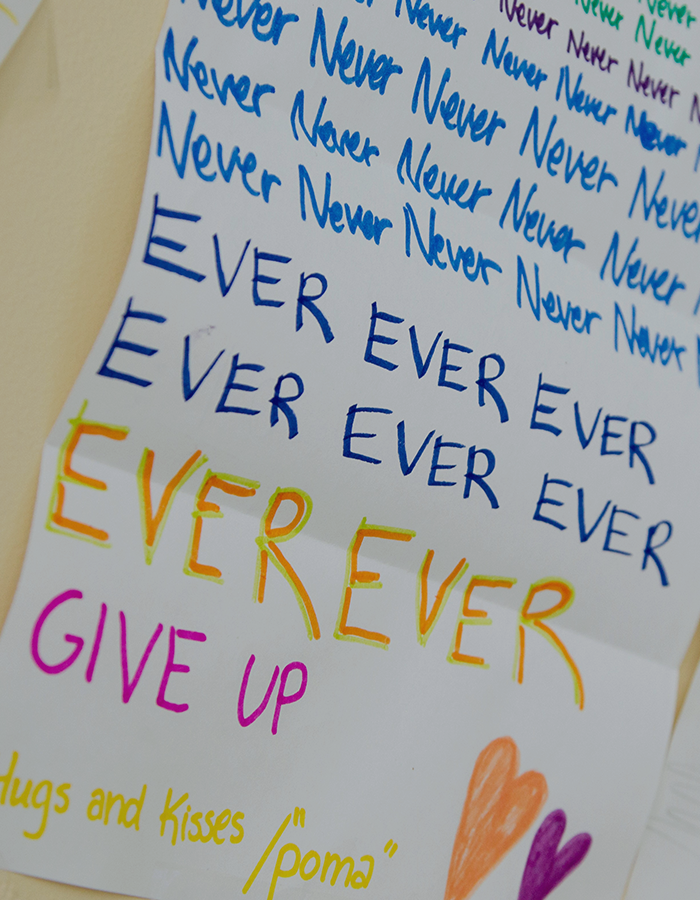 Never
Never Never
Never Never Never
Never Never Never Never
Never Never Never Never Never
Never Never Never Never Never
Never Never Never Never Never
EVER EVER EVER
EVER EVER EVER
EVER EVER
GIVE UP
Hugs and Kisses /"poma"